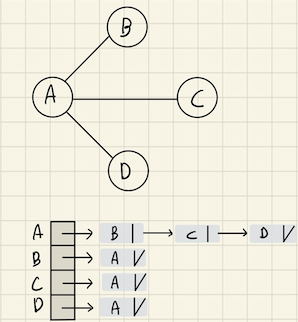 B
A
C
D
A B C D
B A
C A
D A